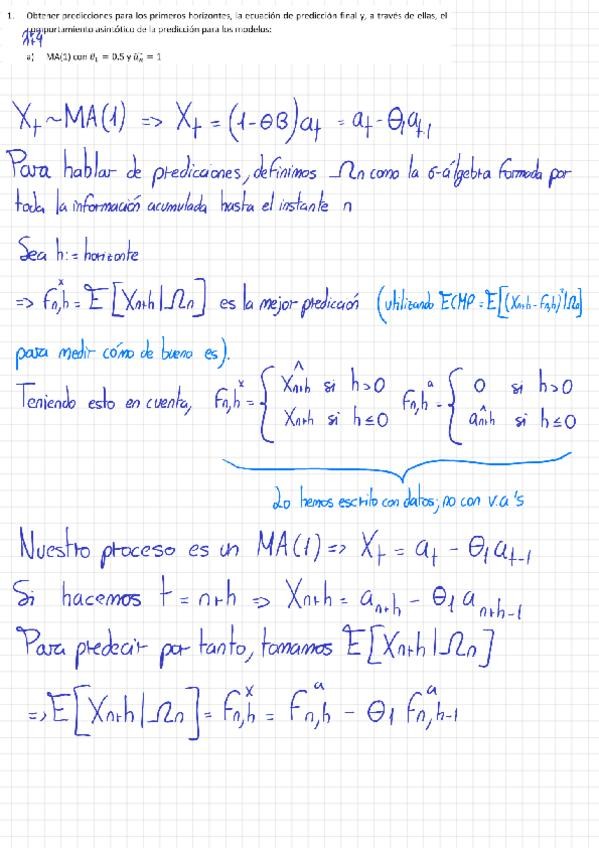 1. Obtener predicciones para los primeros horizontes, la ecuación de predicción final y, a través de ellas, el
comportamiento asintótico de la predicción para los modelos:
a) MA(1) con θ₁ = 0.5 y âₙ = 1
Xₜ ~ MA(1) => Xₜ = (1-θB)aₜ = aₜ - θ₁aₜ₋₁
Para hablar de predicciones, definimos Ωn como la σ-álgebra formada por
toda la información acumulada hasta el instante n
Sea h := horizonte
=> Fₙ,ₕˣ = E[Xₙ₊ₕ|Ωₙ] es la mejor predicción (utilizando ECMP = E[(Xₙ₊ₕ - Fₙ,ₕ)²|Ωₙ]
para medir cómo de bueno es).
Teniendo esto en cuenta, Fₙ,ₕˣ = { X̂ₙ₊ₕ si h>0 Fₙ,ₕᵃ = { 0 si h>0
Xₙ₊ₕ si h≤0 âₙ₊ₕ si h≤0
Lo hemos escrito con datos; no con v.a's
Nuestro proceso es un MA(1) => Xₜ = aₜ - θ₁aₜ₋₁
Si hacemos t = n+h => Xₙ₊ₕ = aₙ₊ₕ - θ₁aₙ₊ₕ₋₁
Para predecir por tanto, tomamos E[Xₙ₊ₕ|Ωₙ]
=> E[Xₙ₊ₕ|Ωₙ] = Fₙ,ₕˣ = Fₙ,ₕᵃ - θ₁ Fₙ,ₕ₋₁ᵃ